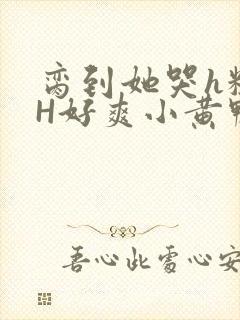 脔到她哭h粗
H好爽小黄鸭
吾心此处心安